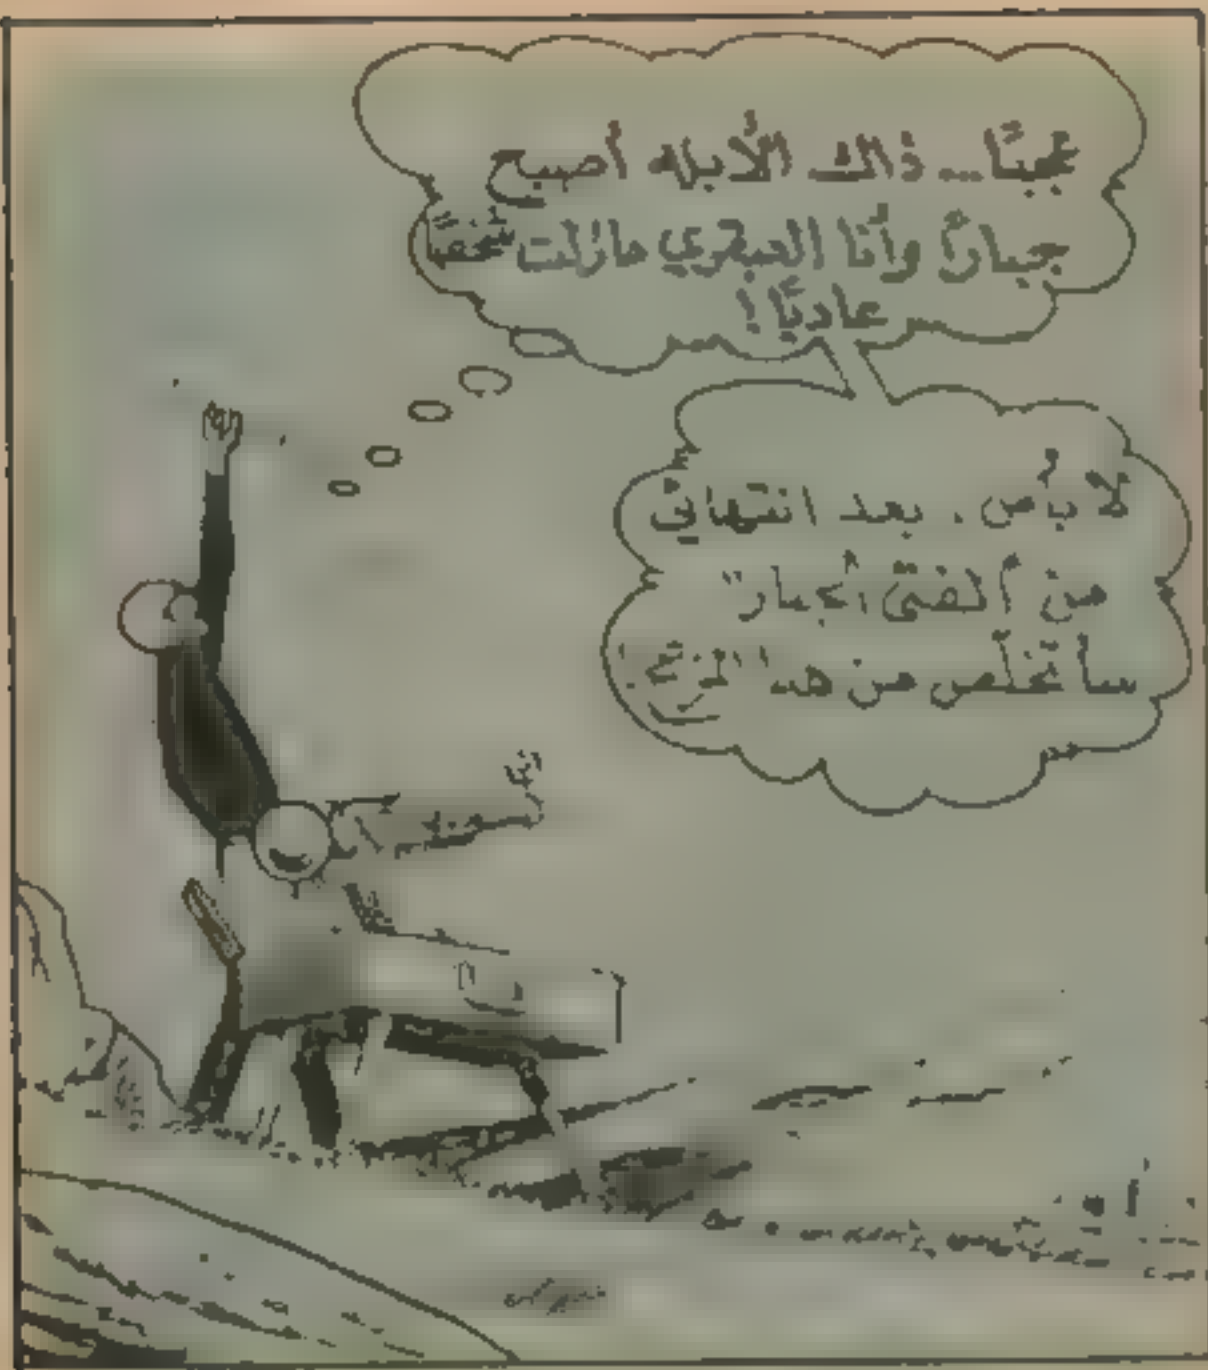 عجبًا... ذاك الأبله أصبح
جبارًا وأنا العبقري مازلت شخصًا
عاديًا!
لا بأس. بعد انتهائي
من ألفتى الجبار"
سأتخلص من هذا